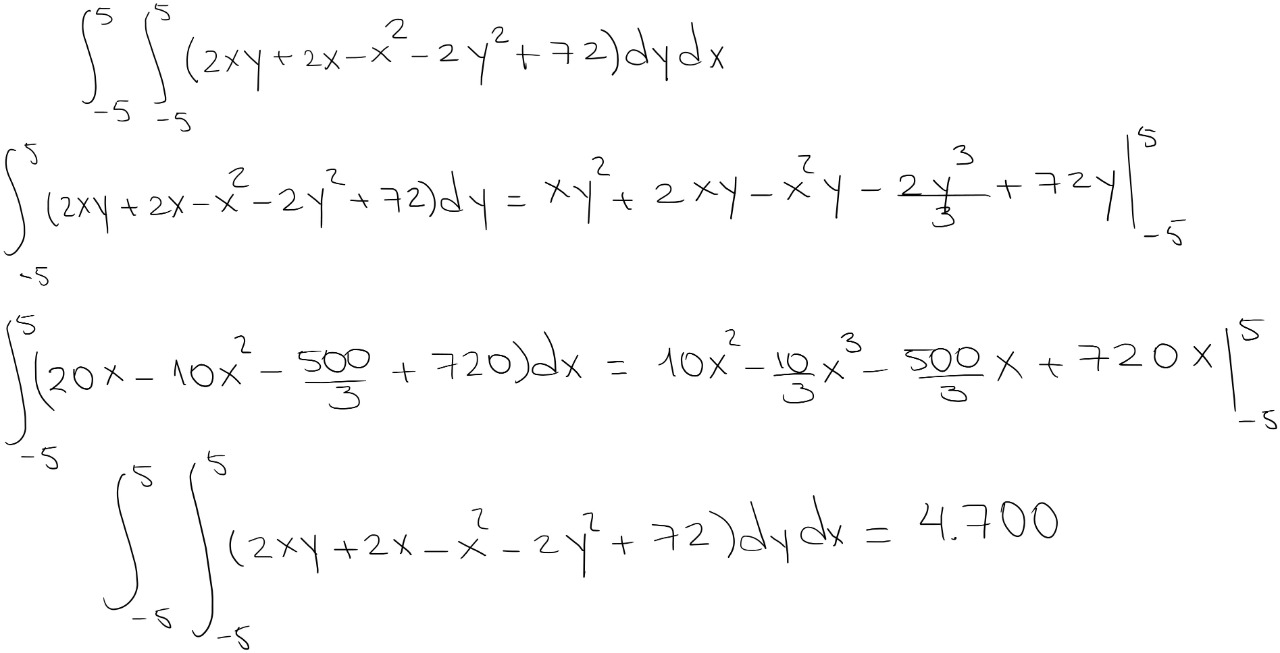 ∫_{-5}^{5} ∫_{-5}^{5} (2xy + 2x - x² - 2y² + 72) dy dx
∫_{-5}^{5} (2xy + 2x - x² - 2y² + 72) dy = xy² + 2xy - x²y - \frac{2y³}{3} + 72y |_{-5}^{5}
∫_{-5}^{5} (20x - 10x² - \frac{500}{3} + 720) dx = 10x² - \frac{10}{3}x³ - \frac{500}{3}x + 720x |_{-5}^{5}
∫_{-5}^{5} ∫_{-5}^{5} (2xy + 2x - x² - 2y² + 72) dy dx = 4.700